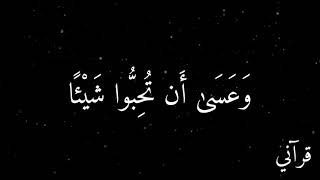 وَعَسَىٰ أَن تُحِبُّوا شَيْئًا
قرآني